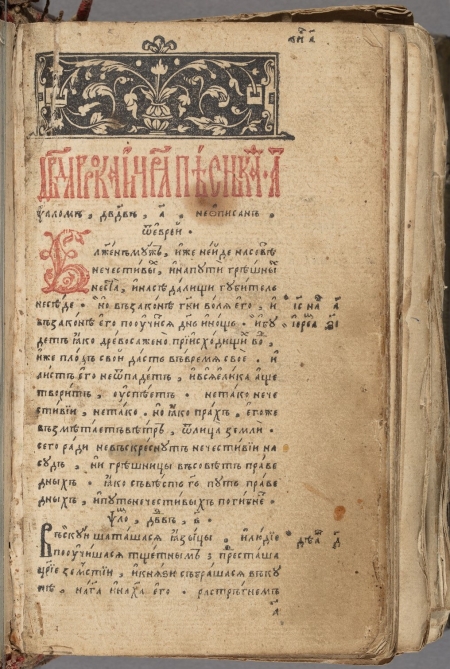 ѱаломъ, дв҃двъ, а҃, неѻписанъ,
ѿеврей.
Блаженъ мужъ, иже нейде насовѣтъ
нечестивы, инапути грѣшны
неста, инасѣдалищи губитель
несѣде. но въ законѣ гн҃и воля его, и
въ законѣ его поучится днь инощь. ибу
детъ ꙗко древо сажено при исходищи во,
иже плодъ свой дастъ въ время свое. и
листъ его неѿпадетъ, ився елика аще
творитъ, оуспѣетъ. нетако нече
стивїи, нетако. но ꙗко прахъ, егоже
възмѣтаетъ вѣтръ, ѿлица земли.
сего ради невъскреснутъ нечестивїи на
судъ, ни грѣшницы въсовѣтъ праве
дныхъ. ꙗко съвѣсть гь путь праве
дныхъ, ипуть нечестивыхъ погибне.
ѱло, дв҃въ, в҃.
Въскую шаташася ꙗзыцы, илюдїе
поучишася тщетнымъ; предсташа
царїе земстїи, икнязи събрашася въку
пѣ, на га инаха его. растръгнемъ
а҃